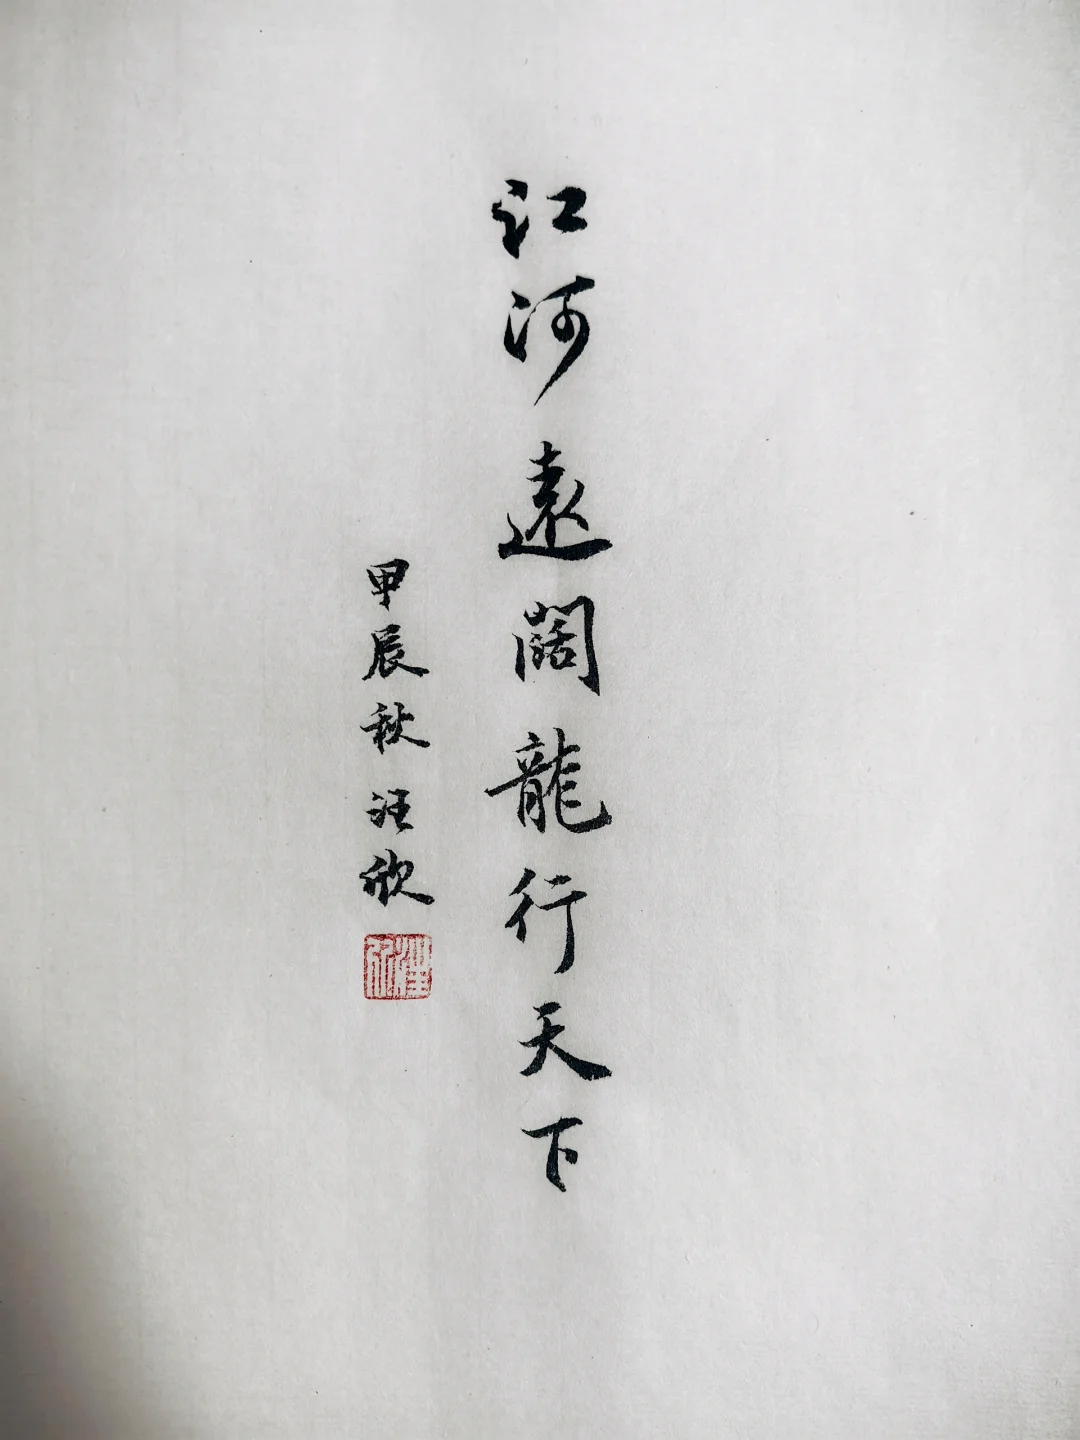 江河遠闊龍行天下
甲辰秋汪欣